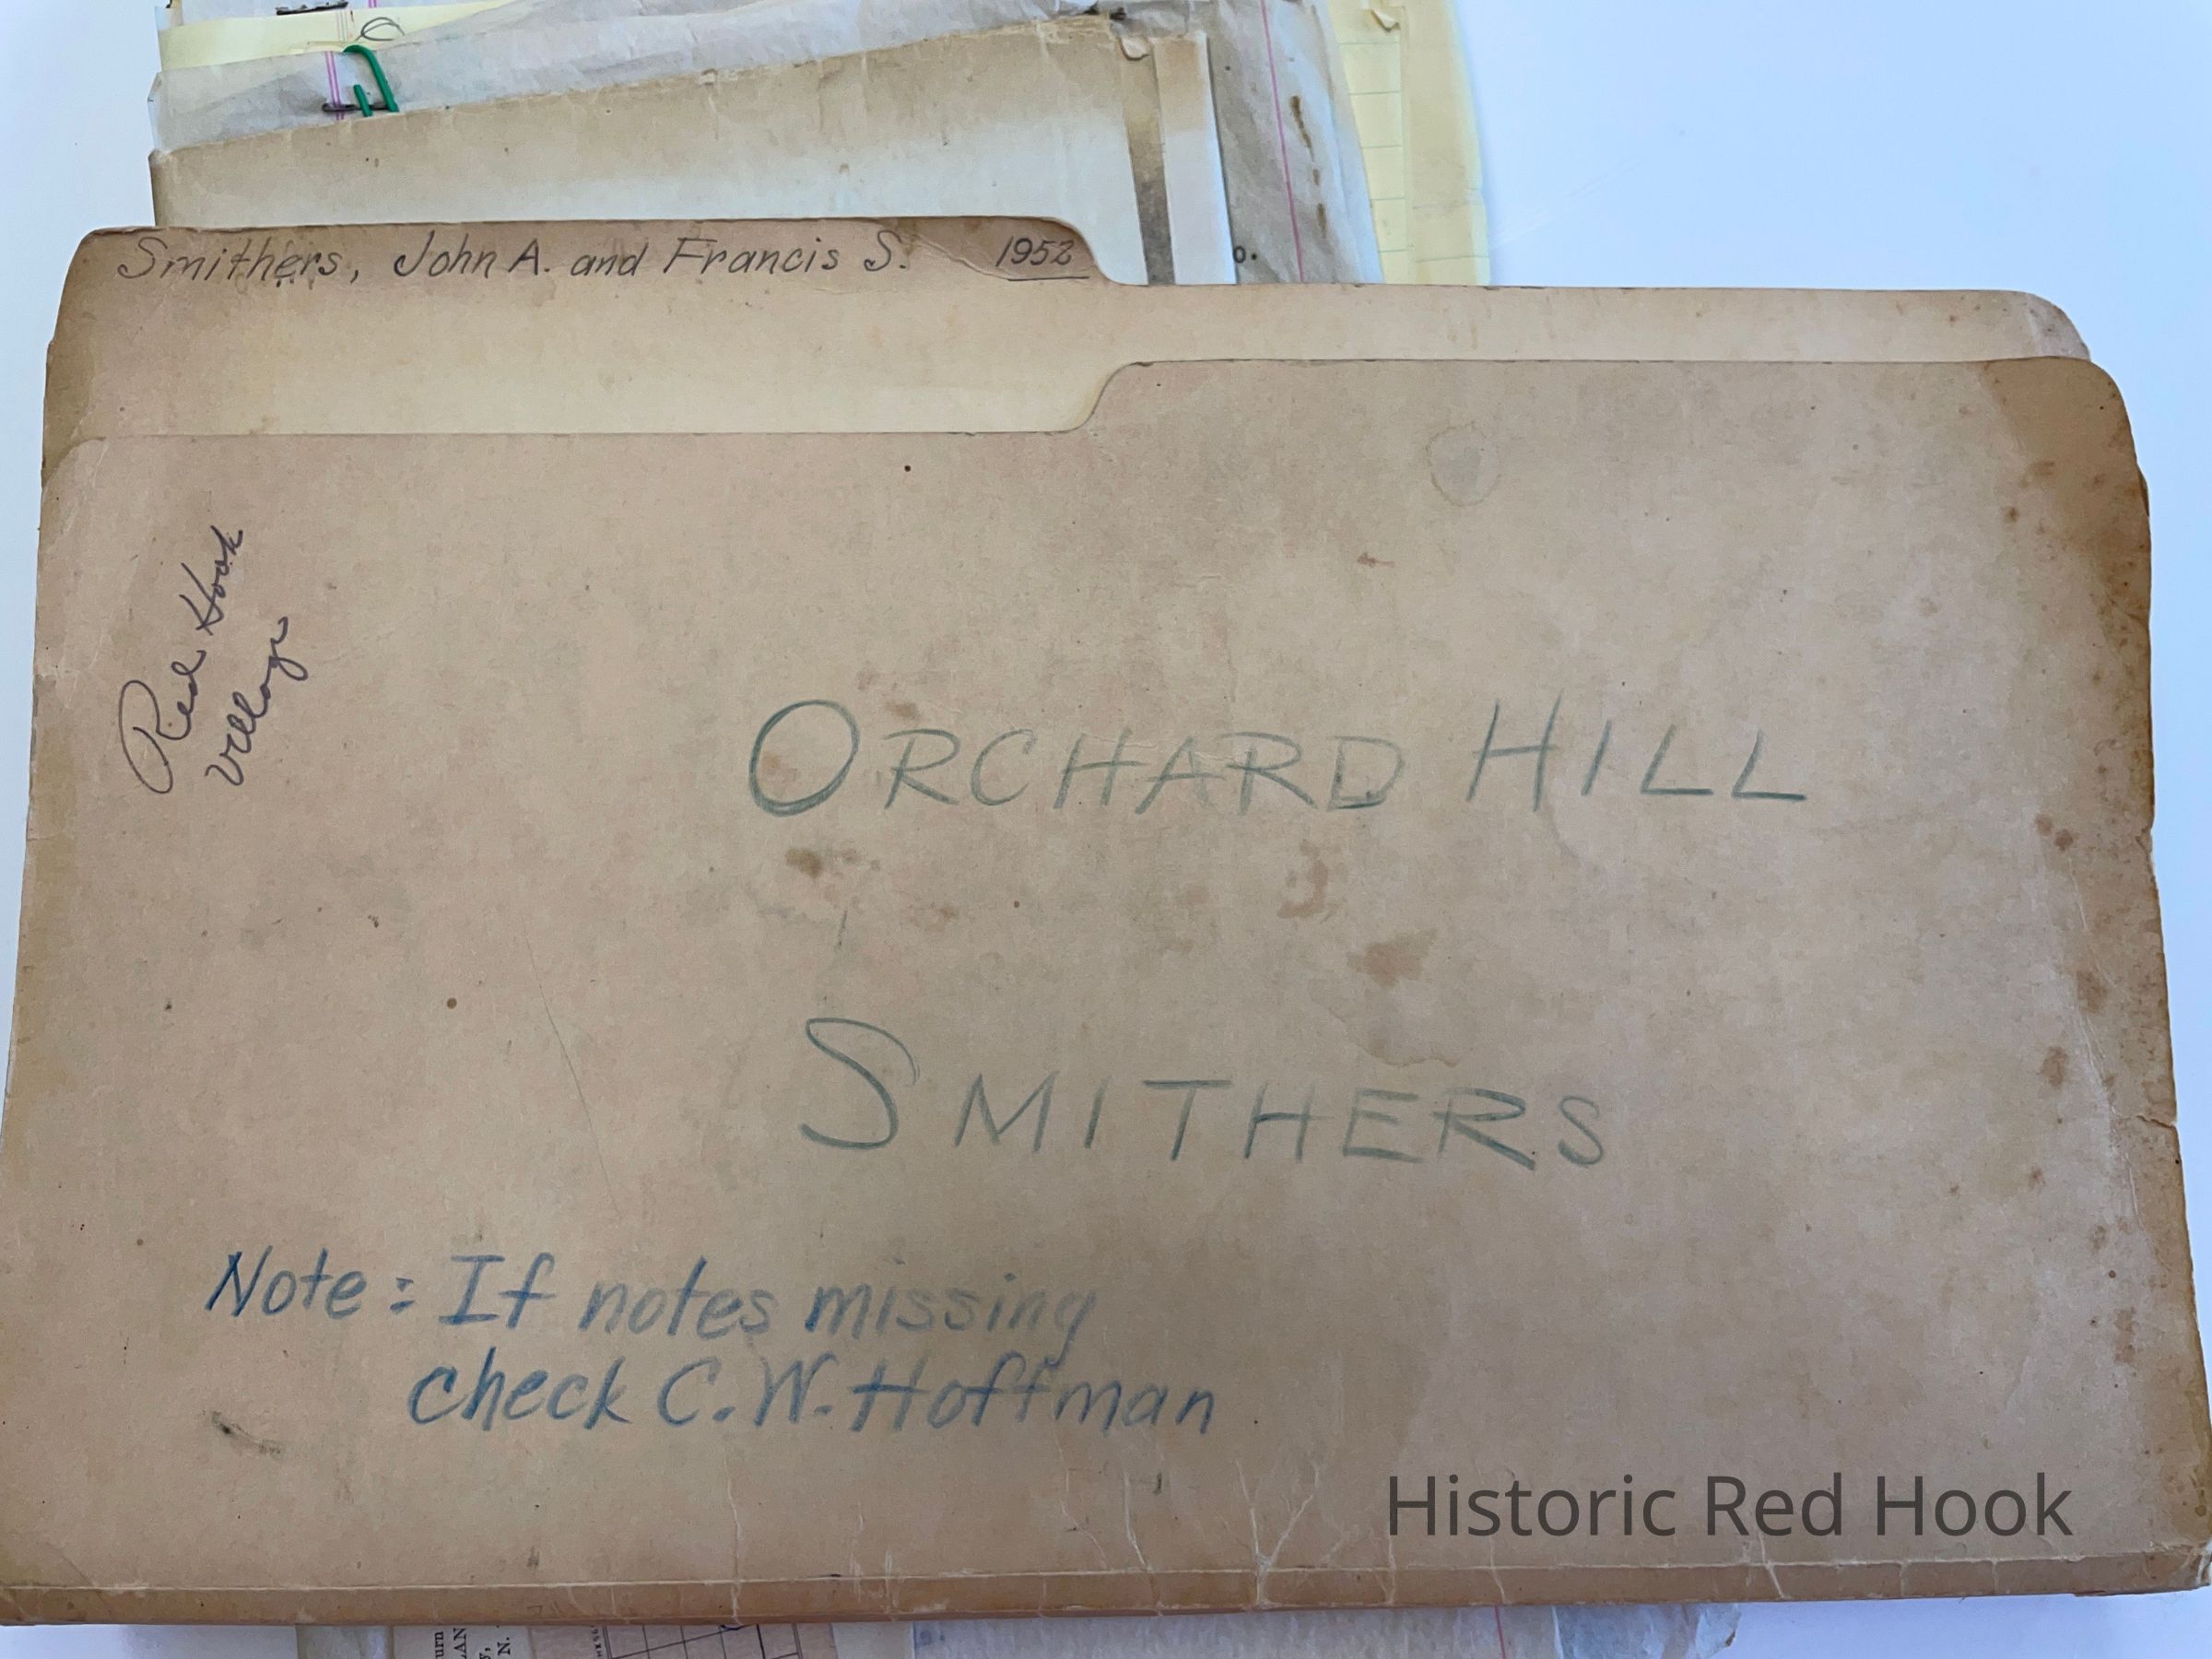 Smithers, John A. and Francis S. 1952
Red Hook
Village
ORCHARD HILL
SMITHERS
Note: If notes missing
check C. W. Hoffman
Historic Red Hook